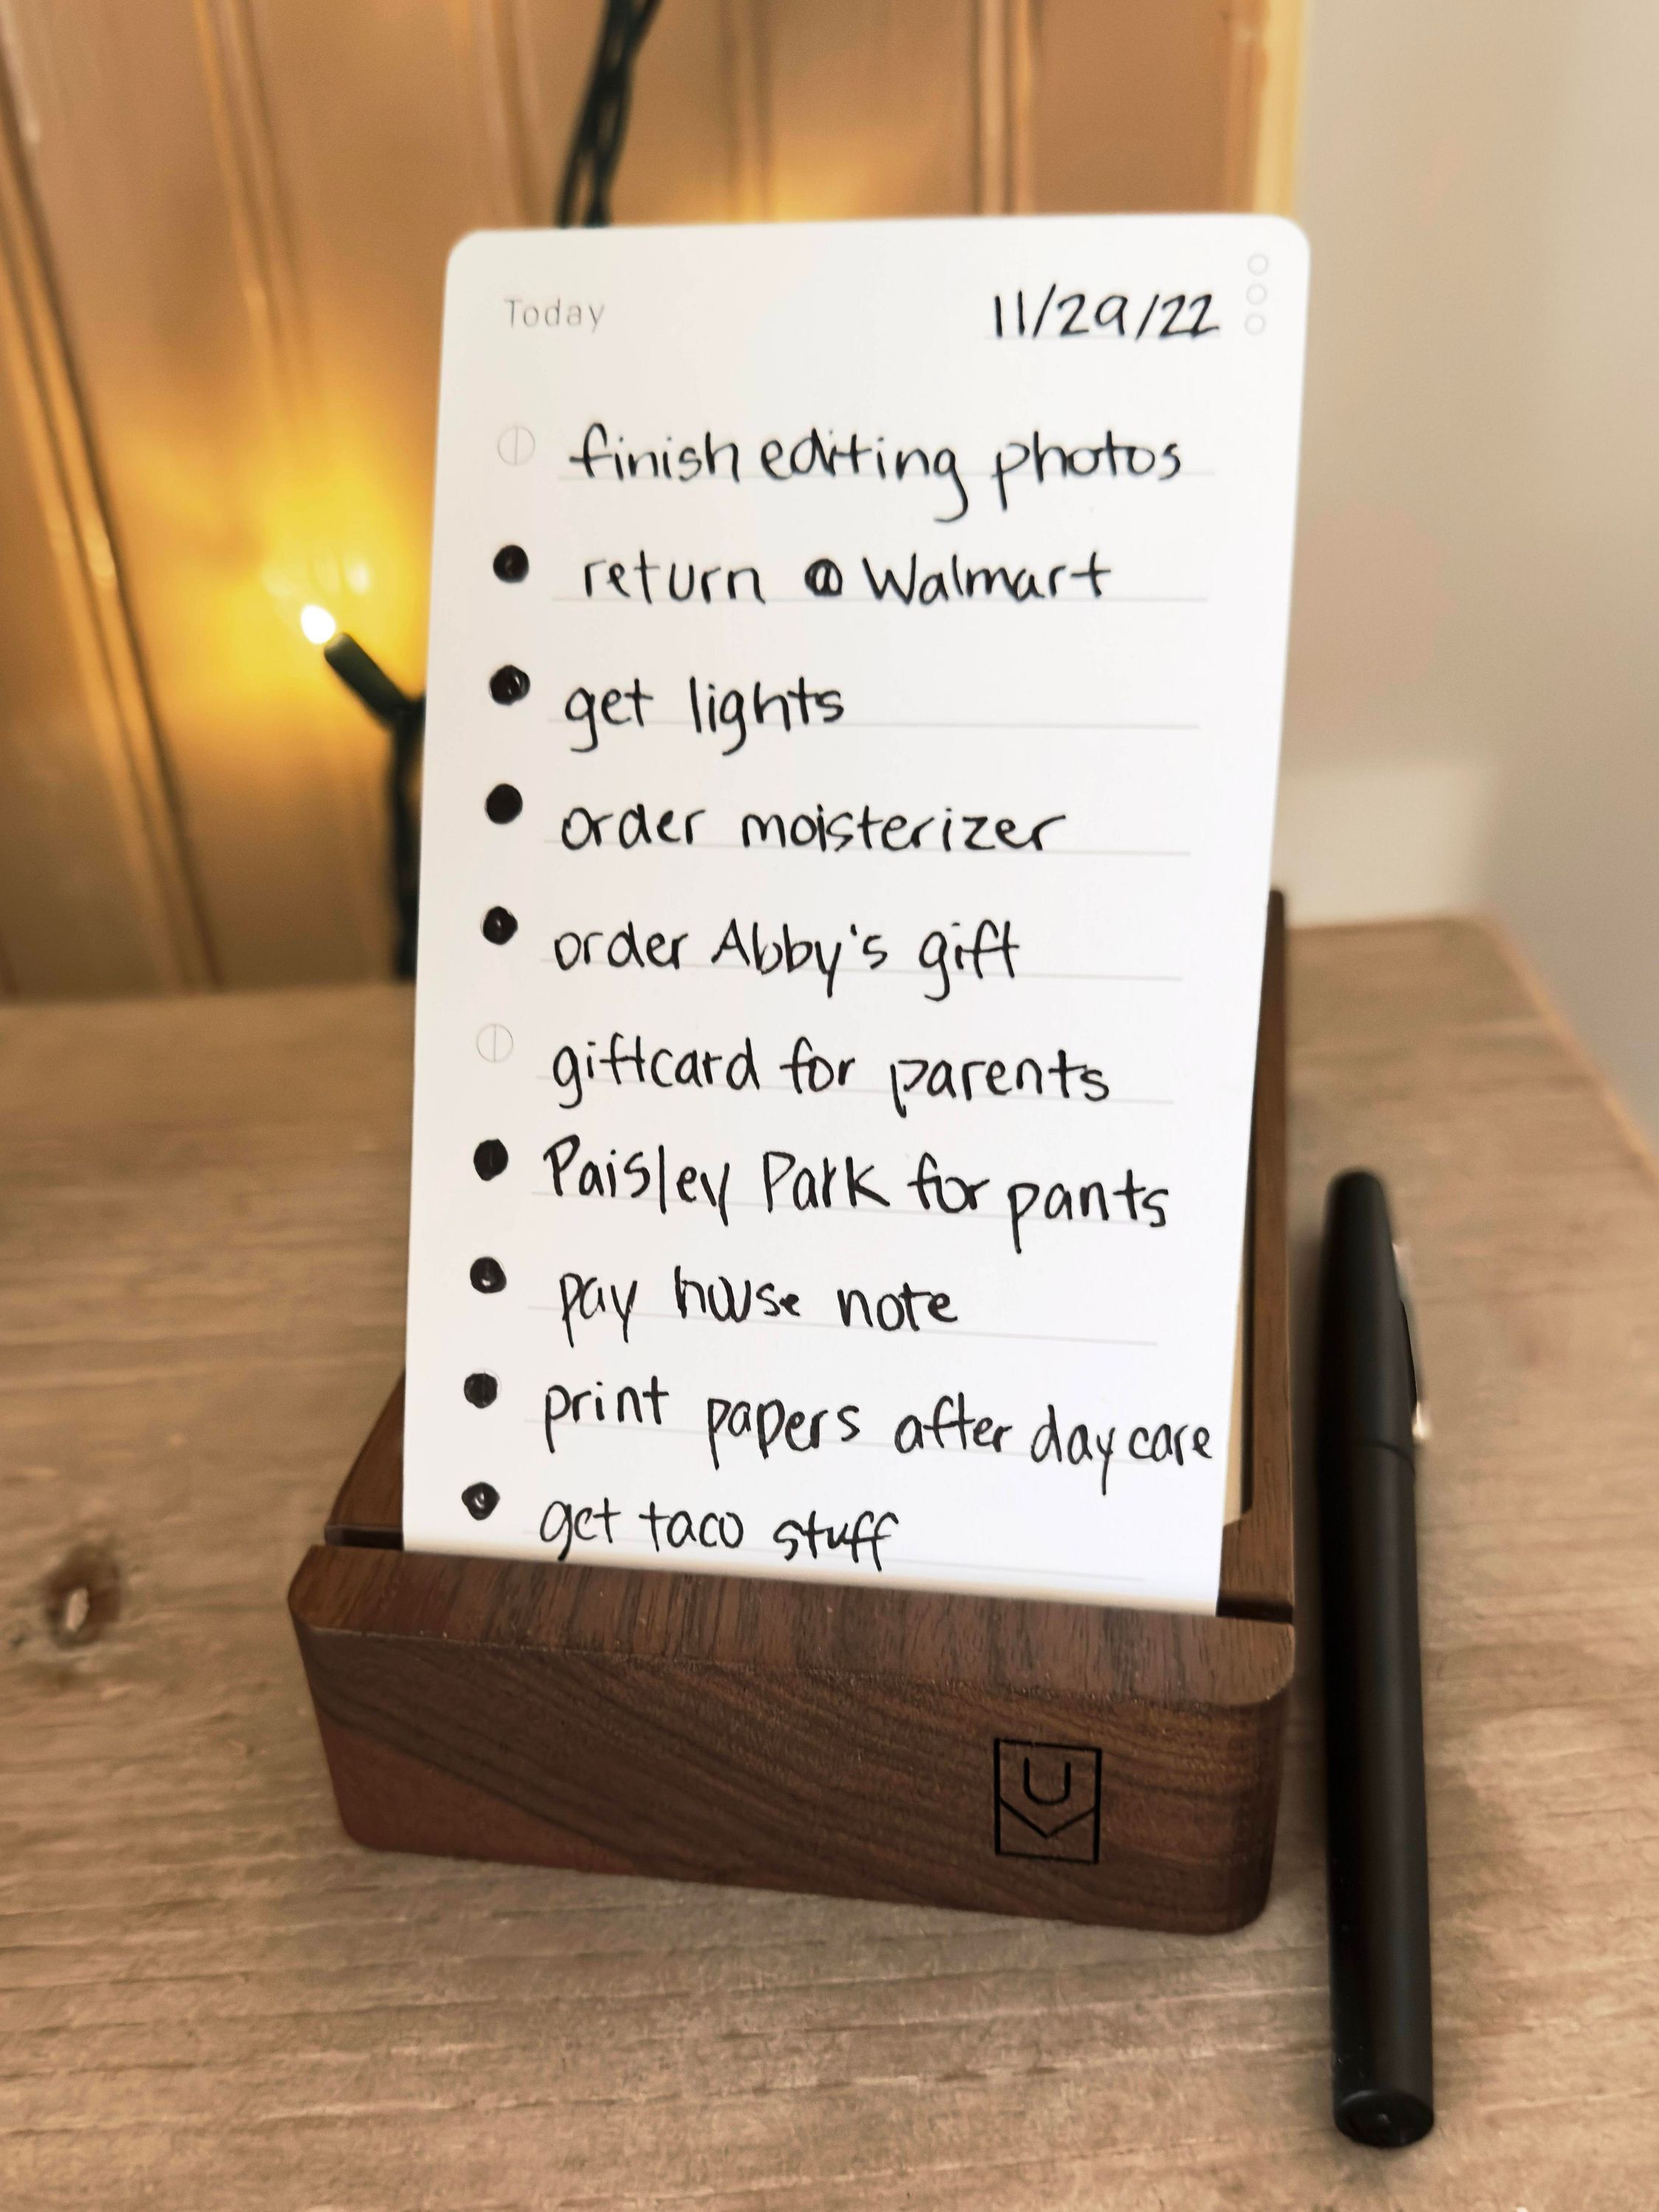 Today 11/29/22
finish editing photos
return @ Walmart
get lights
order moisterizer
order Abby's gift
giftcard for parents
Paisley Park for pants
pay house note
print papers after daycare
get taco stuff
U